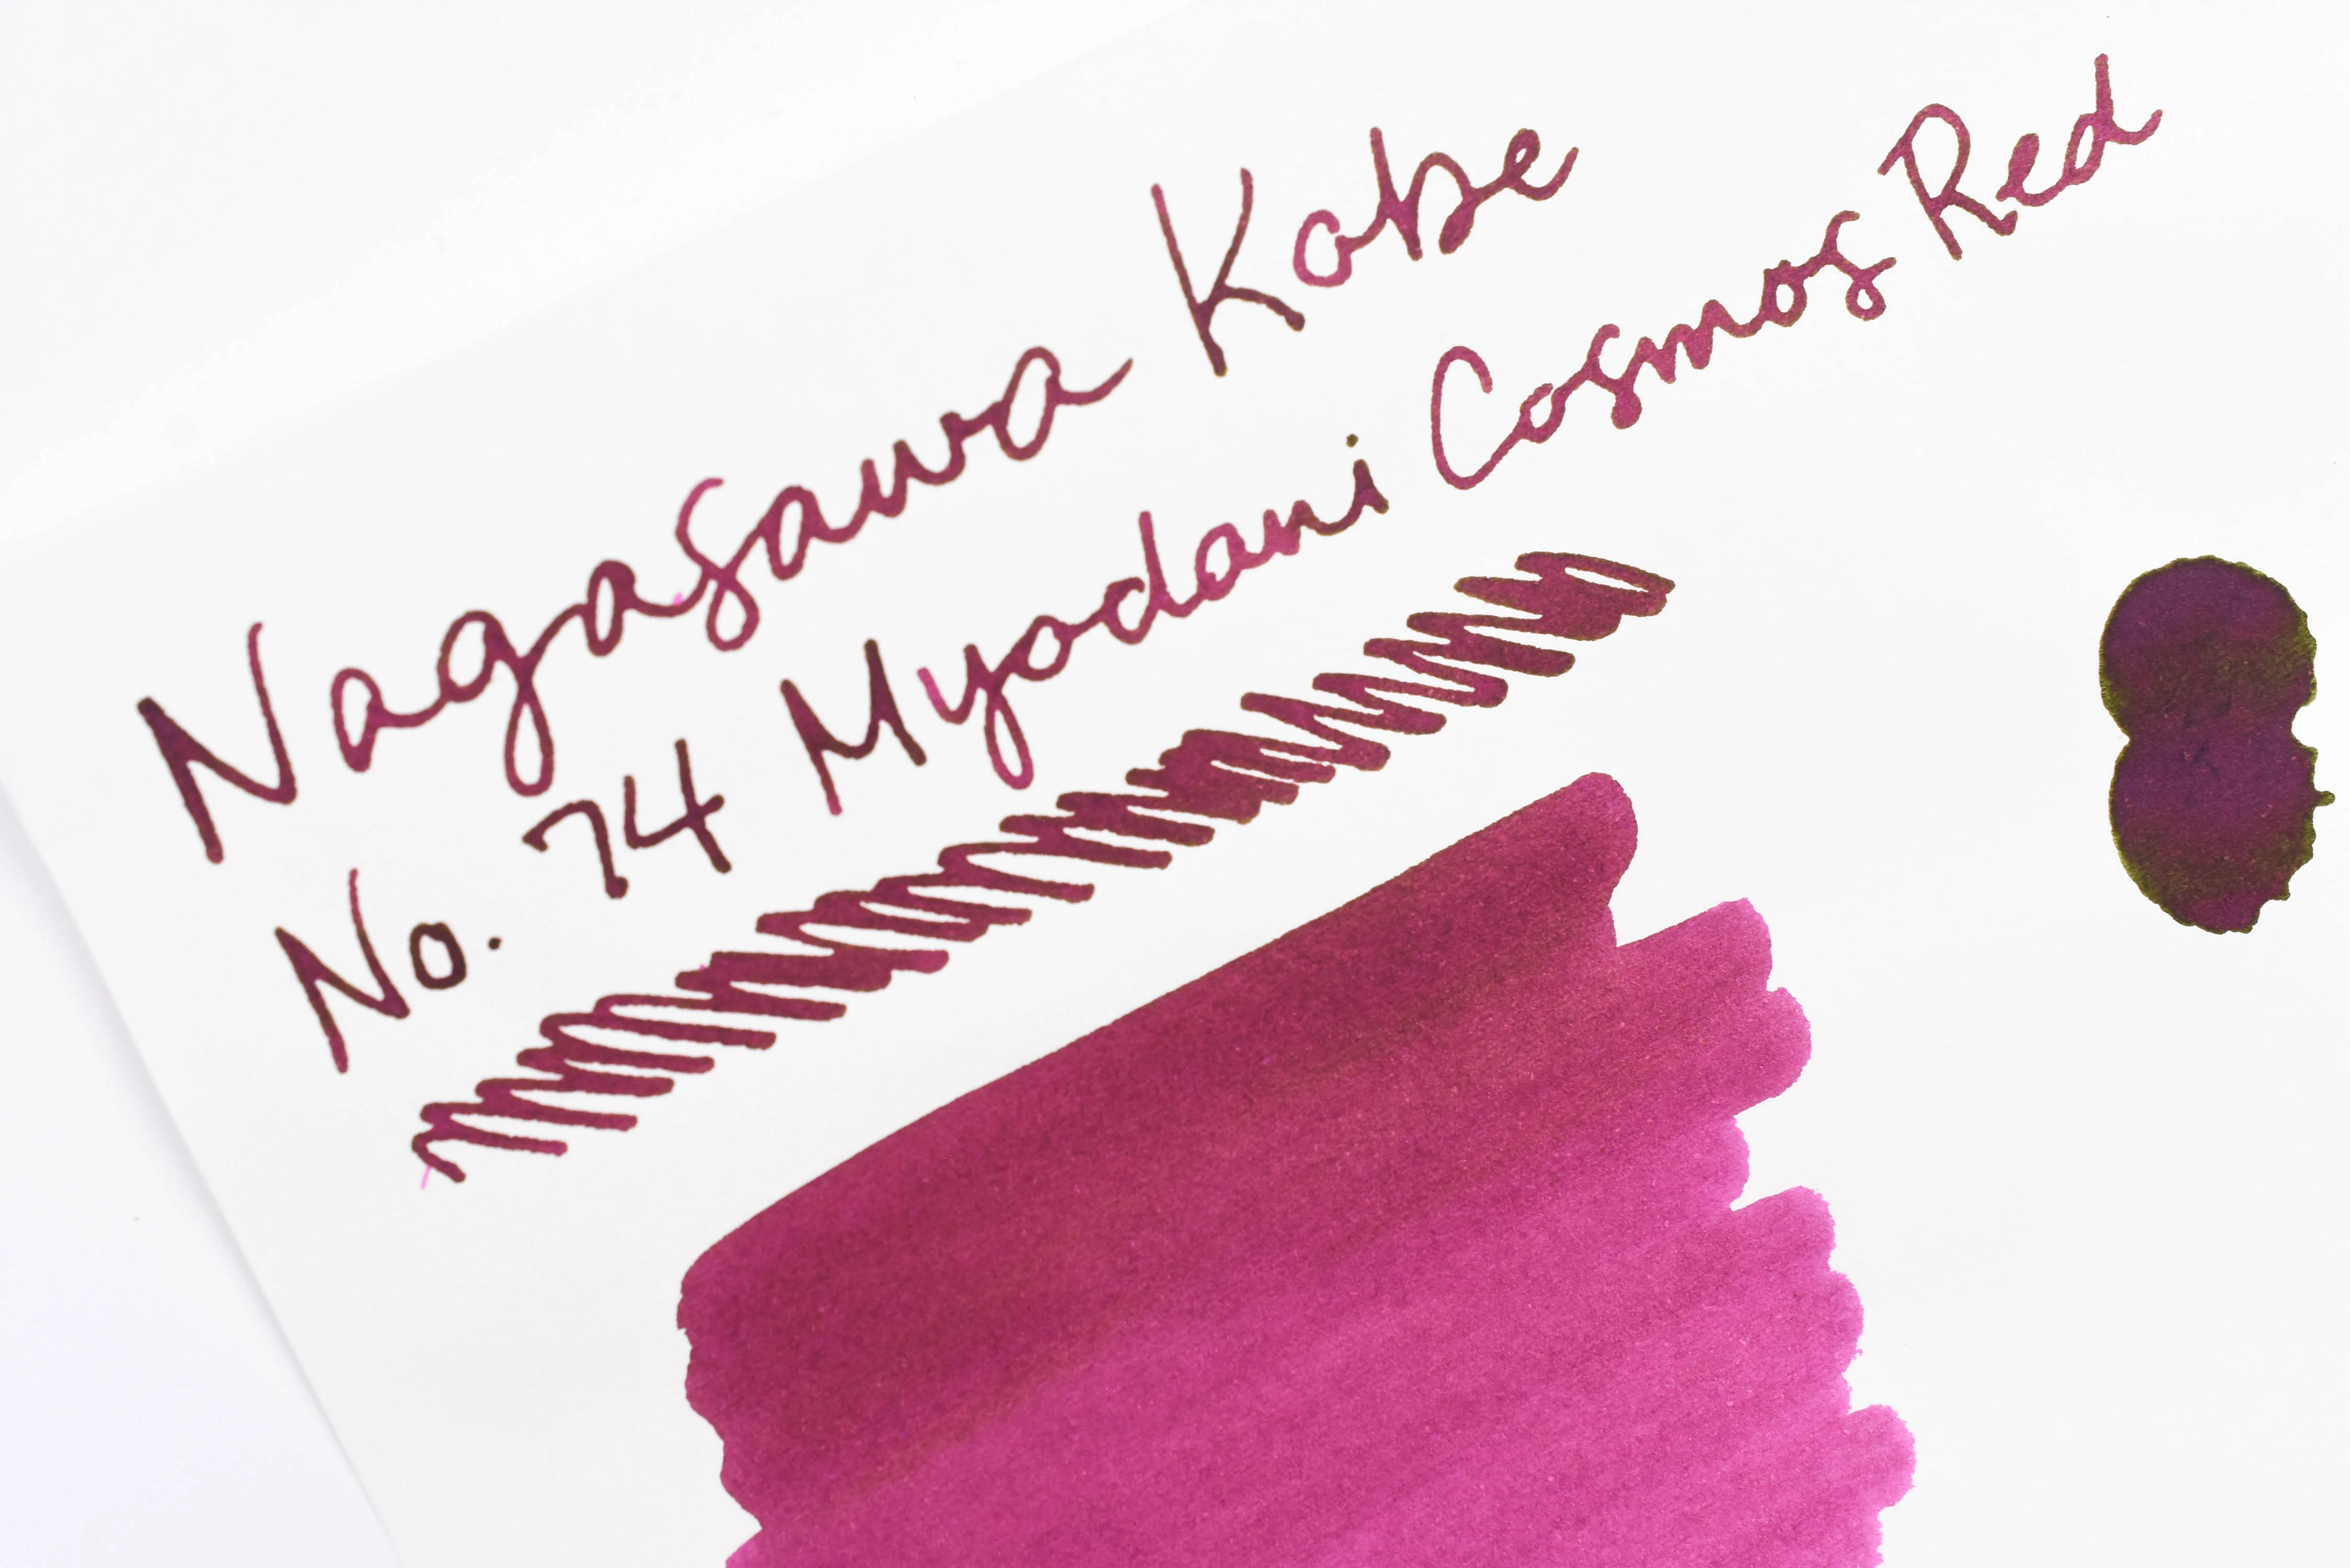 Nagasawa Kobe
No. 74 Myodani Cosmos Red